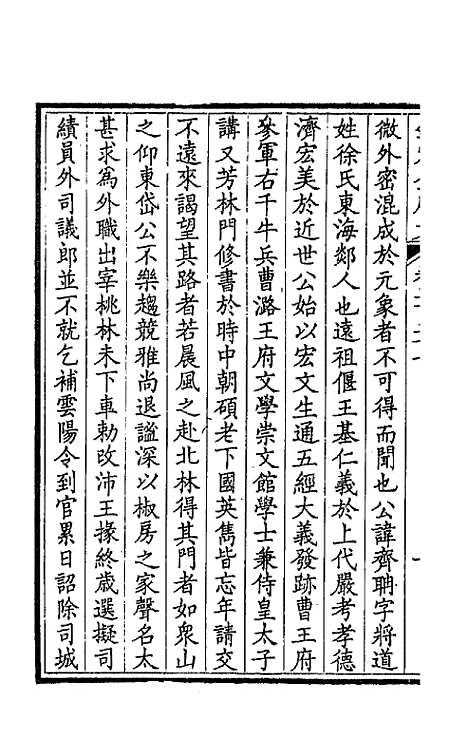 微外密混成於元象者不可得而聞也公諱齊聃字將道
姓徐氏東海郯人也遠祖偃王基仁義於上代嚴考孝德
濟宏美於近世公始以宏文生通五經大義發跡曹王府
參軍右千牛兵曹潞王府文學崇文館學士兼侍皇太子
講又芳林門修書於時中朝碩老下國英雋皆忘年請交
不遠來謁望其路者若晨風之赴北林得其門者如衆山
之仰東岱公不樂趨競雅尚退謐深以椒房之家聲名太
甚求爲外職出宰桃林未下車勅改沛王掾終歳選擬司
績員外司議郎並不就乞補雲陽令到官累日詔除司城